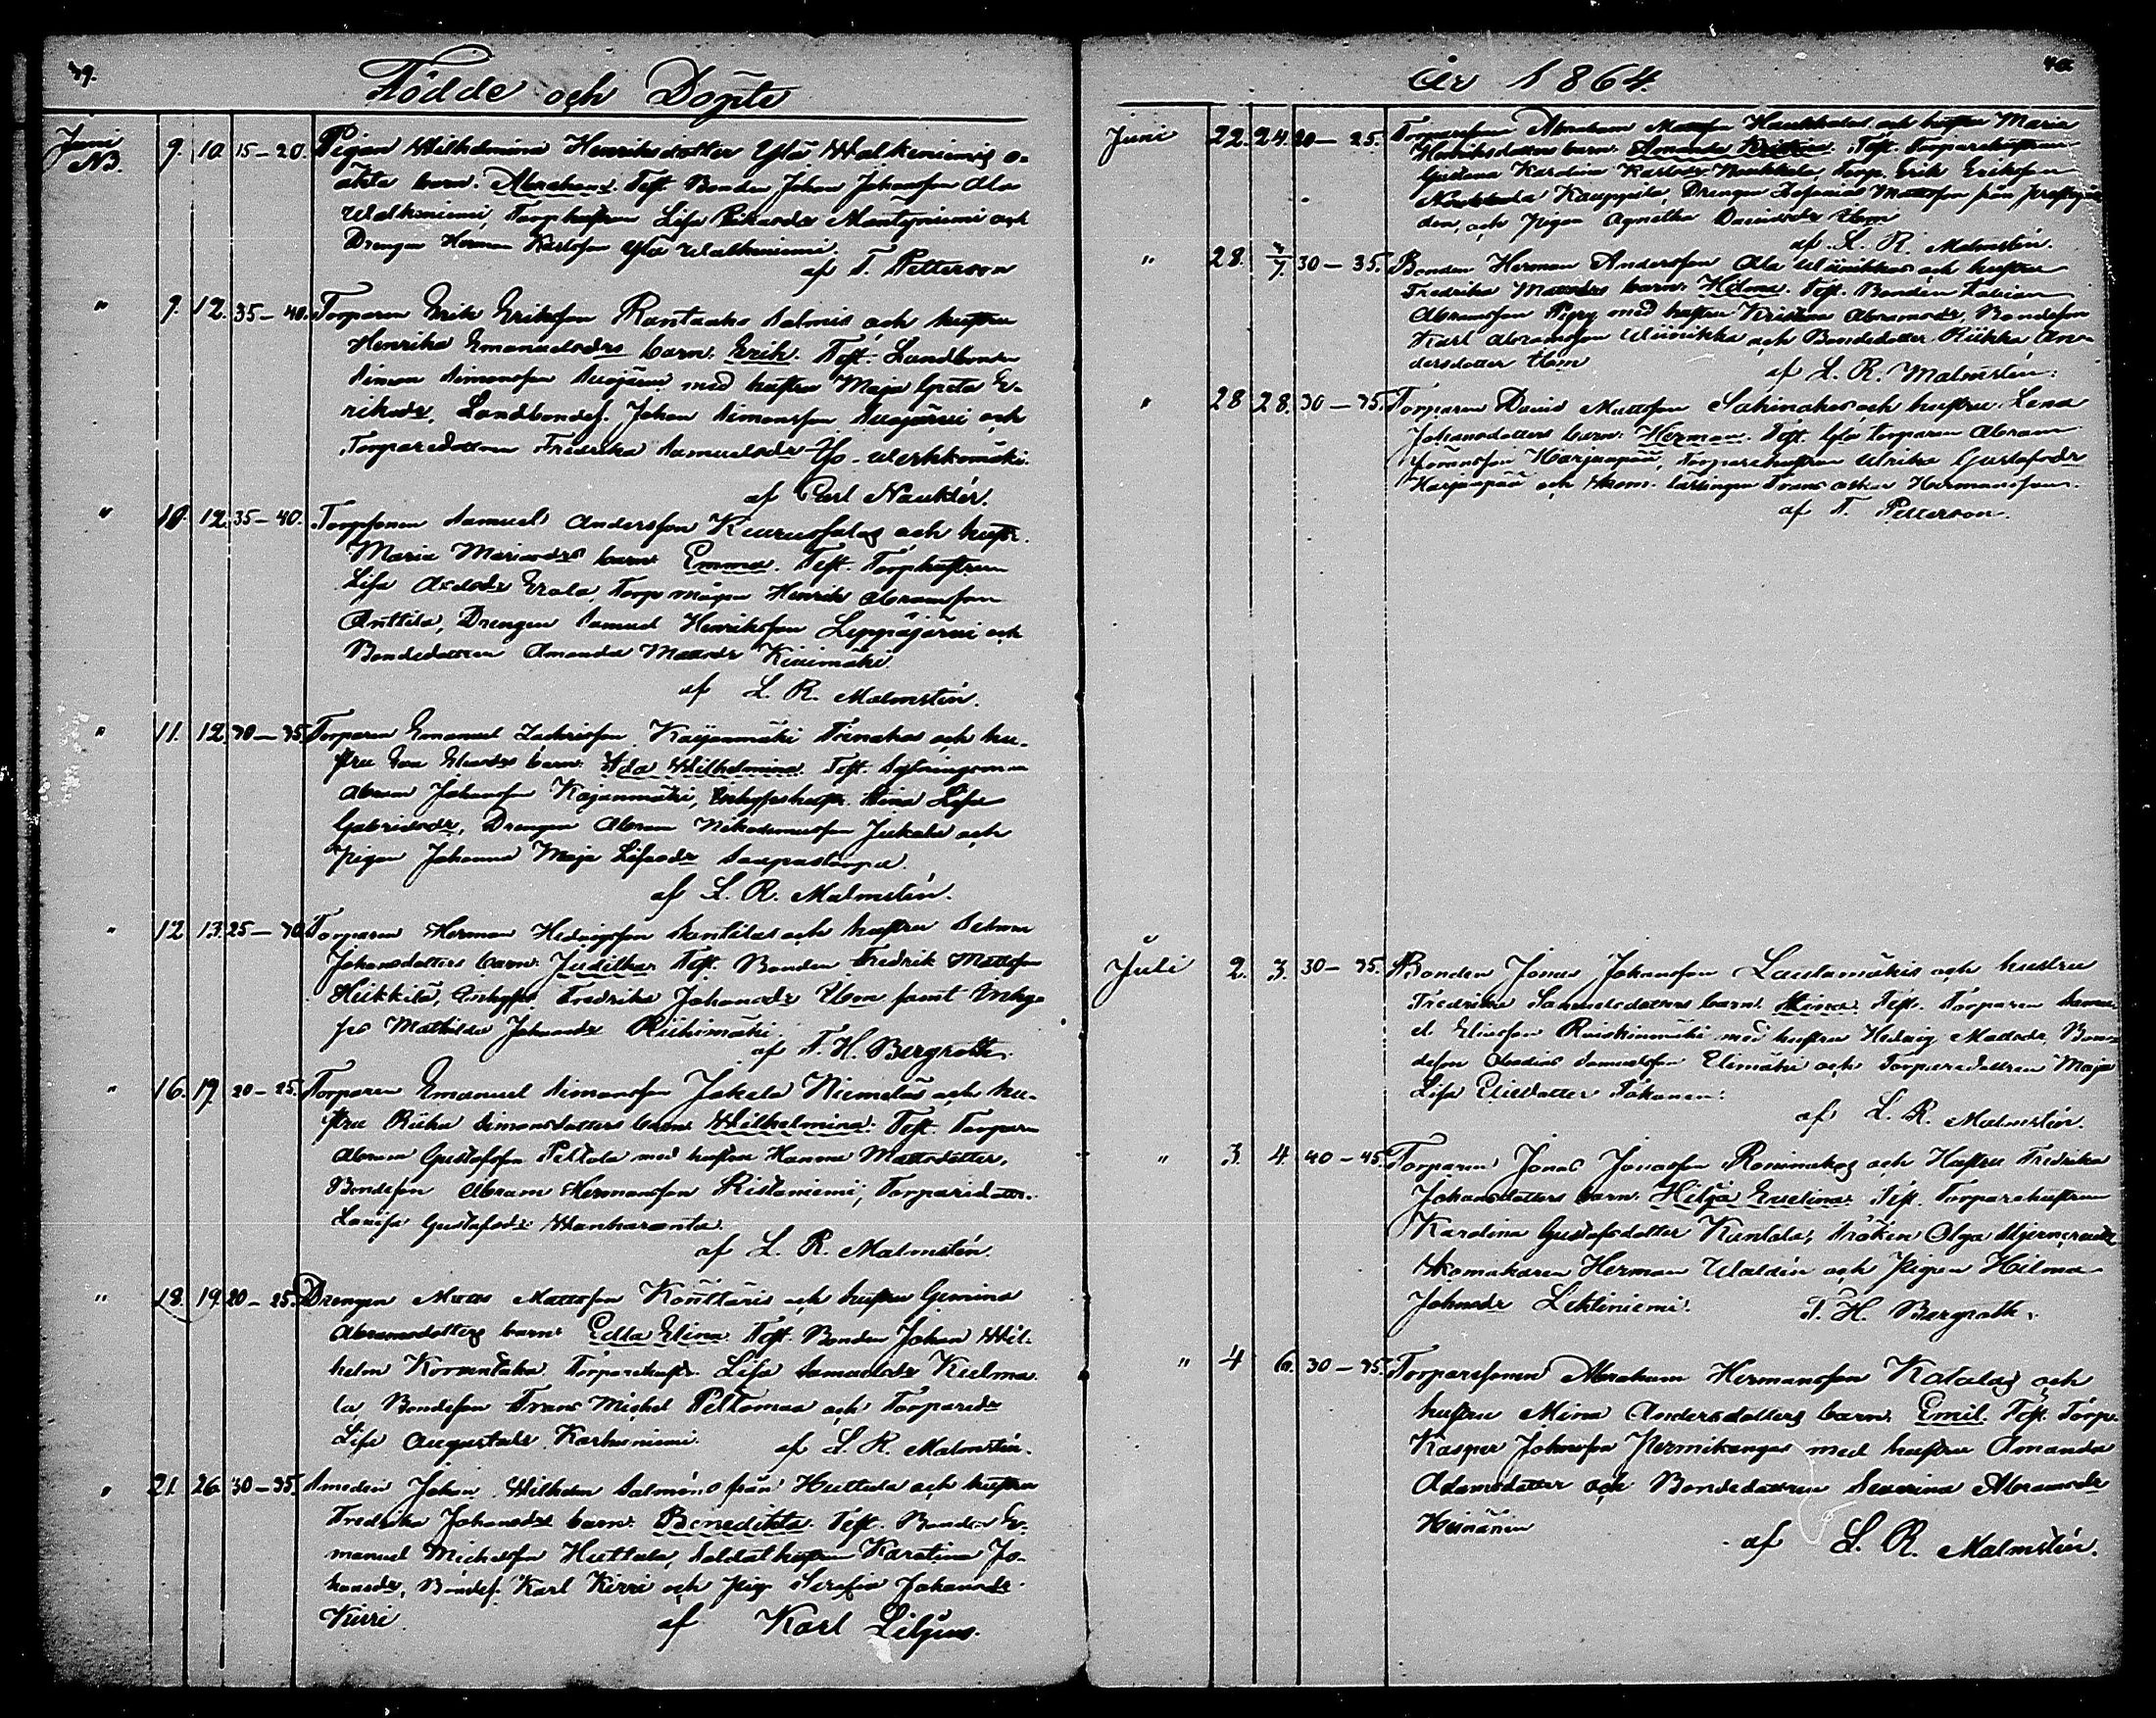 39.
Födde och Döpte
Juni NB. 9. 10. 15-20. Pigan Wilhelmina Henriksdotter Yla Walkeniemis o-
äkta barn. Abraham. Test. Bonden Johan Johansson Ala
Walkeniemi, Torphustrun Lisa Mäntyniemi och
Drengen Herman Karlsson Yla Walkeniemi.
af T. Petterson
" 9. 12. 35-40. Torparen Erik Eriksson Rantaaho Salmis och hustru
Henrika Emanuelsdrs barn. Erik. Test. Landbonden
Simon Simonsson Suojärvi med hustru Maja Greta E-
riksdr, Landbondes. Johan Simonsson Suojärvi och
Torparedottren Fredrika Samuelsdr
af Carl Nauklér.
" 10. 12. 35-40. Torpsonen Samuel Andersson och hustr.
Maria barn Emma. Test. Torphustrun
Lisa Erola, Torpmågen Henrik Abramsson
Anttila, Drengen Samuel Henriksson Leppäjärvi och
Bondedottren Amanda Mattsdr Kivimäki
af L. R. Malmstén.
" 11. 12. 30-35. Torparen Emanuel Zachrisson Kajanmäki och hu-
stru Eva barn. Ida Wilhelmina. Test. Sytningsman
Abram Johansson Kajanmäki, Stina Lisa
Gabrielsdr, Drengen Abram Nikodemusson Jukola och
Pigan Johanna Maja
af L. R. Malmstén.
" 12 13. 25-30. Torparen Herman Hedvigsson Santilas och hustru
Johansdotters barn. Judithu. Test. Bonden Fredrik Mattsson
Heikkilä, Fredrika Johansdr samt Inhy-
Mathilda Johansdr Riihimäki
af F. H. Bergroth.
" 16. 17. 20-25. Torparen Emanuel Simonsson Jokela Niemeläs och hu-
stru Simonsdotters barn Wilhelmina. Test. Torparen
Abram Gustafsson Peltola med hustru Hanna Mattsdotter,
Bondeson Abram Hermansson Ristaniemi, Torparedottr.
Lovisa Gustafsdr Wanharanta.
af L. R. Malmstén.
" 18. 19. 20-25. Drengen Matts Mattsson Könttäris och hustru Gemina
Abramsdotters barn Edla Elina. Test. Bonden Johan Wil-
helm Torparehustr. Lisa Samuelsdr Kulma-
la, Bondeson Frans Michel Peltomaa och Torparedr
Lisa Augustadr Karhuniemi. af L. R. Malmstén.
" 21. 26. 30-35. Smeden Johan Wilhelm Salméns från Huttula och hustru
Fredrika Johansdrs barn. Benedikta. Test. Bonden E-
manuel Michelsson Huttula, Soldathustrun Karolina Jo-
hansdr, Bondes. Karl Kirri och Pig. Serafia Johansdr
Kirri. af Karl Liljus.
År 1864.
40
Juni 22. 24. 20-25. Torparesonen Abraham Mattsson och hustru Maria
Henriksdotters barn. Amanda Kristina. Test. Torparehustrun
Gustava Karolina Karlsdr Torp. Erik Eriksson
Kauppila, Drengen Zefanias Mattsson från prestgår-
den, och Pigan Agnetha Davidsdr
af L. R. Malmstén.
" 28. 3/7. 30-35. Bonden Herman Andersson Ala Wiinikkas och hustru
Fredrika Mattsdrs barn. Hilma. Test. Bonden Fabian
Abramsson med hustru Kristina Abramsdr, Bondeson
Karl Abramsson Wiinikka och Bondedotter Riikka An-
dersdotter
af L. R. Malmstén.
" 28 28. 30-35. Torparen David Mattsson Sahinahos och hustru Lena
Johansdotters barn. Herman. Test. torparen Abram
Harjunpää, Torparehustrun Ulrika Gustafsdr
Harjunpää och Skom. lärlingen Frans Oskar Hermansson.
af T. Petterson.
Juli 2. 3. 30-35. Bonden Jonas Johansson Lautamäkis och hustru
Fredrika Samuelsdotters barn. Stina. Test. Torparen Samu-
el Eliasson Raiskinmäki med hustru Hedvig Mattsdr, Bon-
deson Samuelsson Elimäki och Torparedottren Maja
Lisa Elisdotter
af L. R. Malmstén.
" 3. 4. 40-45. Torparen Jonas Jonasson och Hustru Fredrika
Johansdotters barn. Hilja Evelina. Test. Torparehustrun
Karolina Gustafsdotter Kuntola, Fröken Olga
Skomakaren Herman Waldén och Pigan Hilma
Johansdr Lehtiniemi. F. H. Bergroth.
" 4 6. 30-35. Torparesonen Abraham Hermansson Kotalas och
hustru Mina Andersdotters barn. Emil. Test. Torp.
Kasper Johansson Permikangas med hustru Amanda
Adamsdotter och Bondedottren Severina Abramsdr
Heinänen
af L. R. Malmstén.